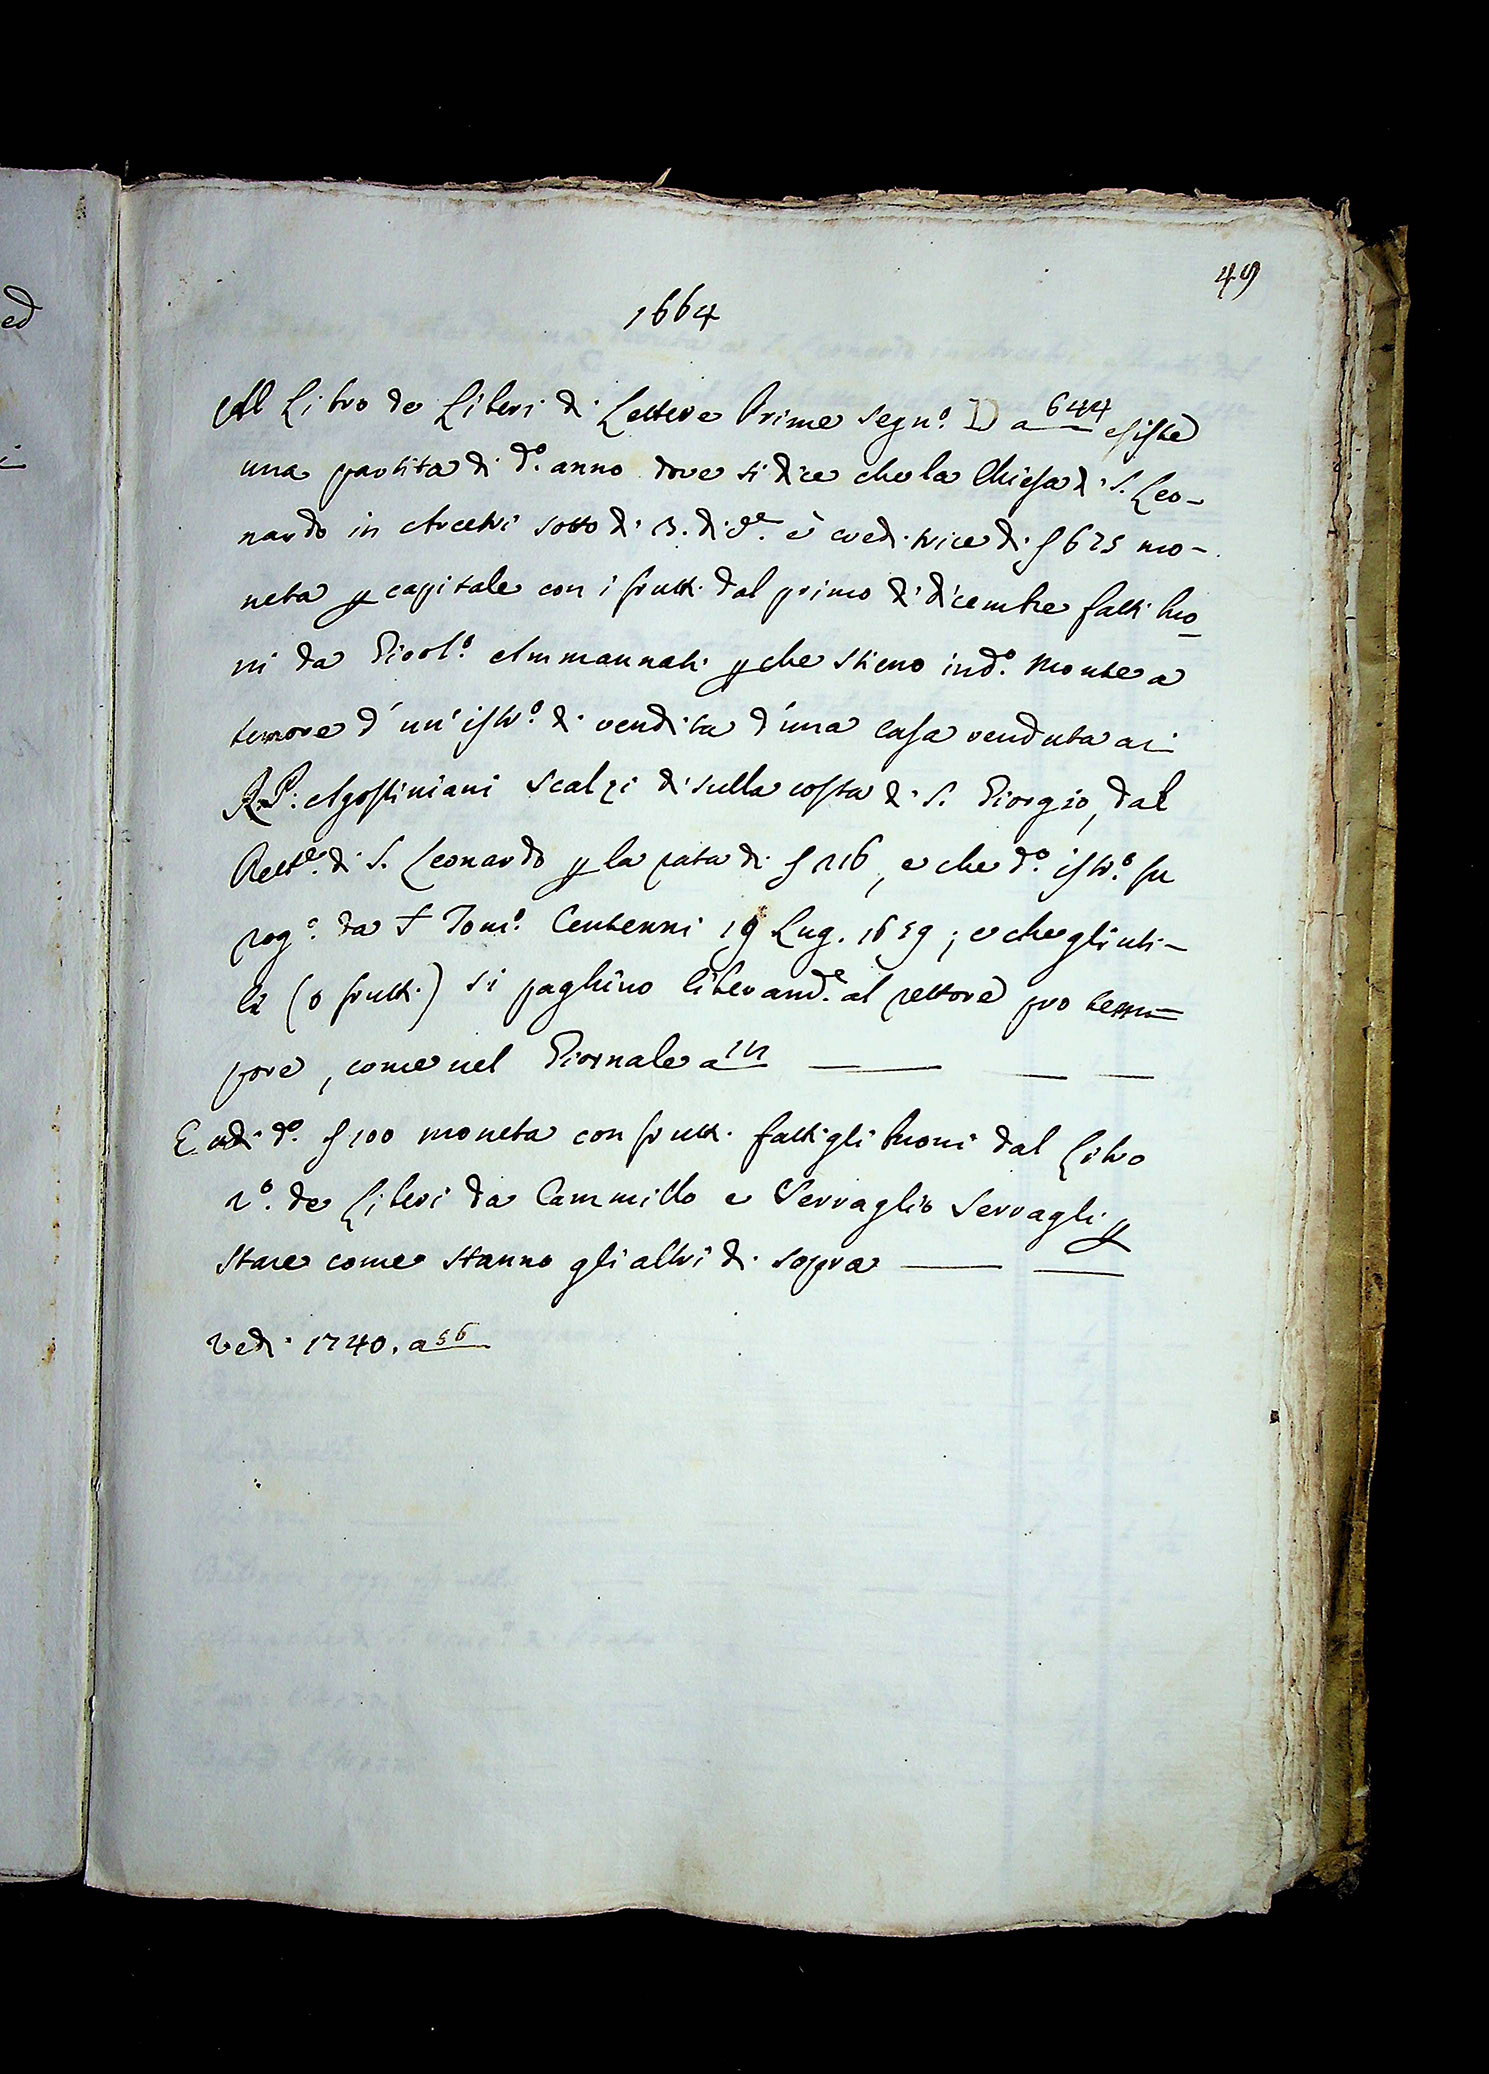 49
1664
Al Libro de Liberi di Lettere Prime segn.º D a 644 esiste
una partita di d.º anno dove si dice che la Chiesa di S. Leo-
nardo in Arcetri sotto di 13. di d.e è creditrice di f 625 mo-
neta p capitale con i frutti dal primo di dicembre fatti buo-
ni da Girol.º Ammannati p che stieno in d.º Monte a
tenore d'un' istr.º di vendita d'una casa venduta ai
R.P: Agostiniani Scalzi di sulla costa di S. Giorgio, dal
Rett.e di S. Leonardo p la rata di f 216, e che d.º istr.º fu
rog.º da S Tom.º Centenni 19 Lug. 1659; e che gli uti-
li (o frutti) si paghino liberam.e al rettore pro tem=
pore, come nel Giornale a 121
E adi d.º f 100 moneta con frutti fattigli buoni dal Libro
2.º de Liberi da Cammillo e Serraglio Serragli p
stare come stanno gli altri di sopra
Vedi 1740. a 56
ed